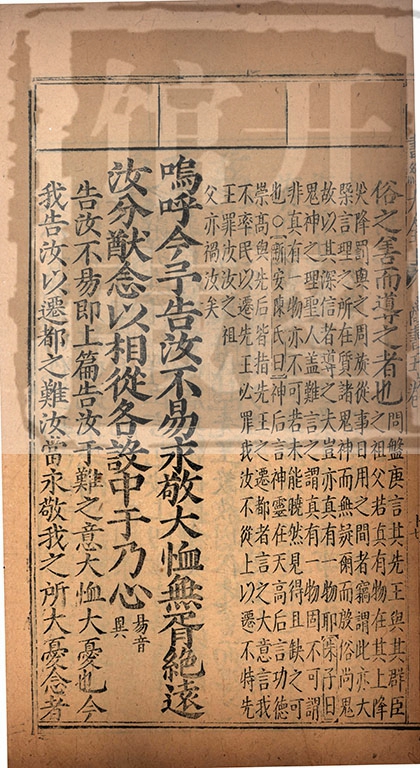 俗之害而導之者也
問盤庚言其先王與其群臣
之祖父若真有物在其上降
災降罰與之周旋從事日用之間者竊謂此亦大
槩言理之所在質諸鬼神而無疑爾而殷俗尚鬼
故以其深信者導之夫豈亦真有一物耶朱子曰
鬼神之理聖人蓋難言之謂真有一物固不可謂
非真有一物亦不可若未能曉然見得且缺之可
也○新安陳氏曰神后言神靈在天高后言功德
崇高與先后皆指先王之遷都者言之大意言我
不率民以遷先王必罪我汝不從上以遷不特先
王罪汝汝之祖
父亦禍汝矣
嗚呼今予告汝不易永敬大恤無胥絶遠
汝分猷念以相從各設中于乃心
易音
異
告汝不易即上篇告汝于難之意大恤大憂也今
我告汝以遷都之難汝當永敬我之所大憂念者